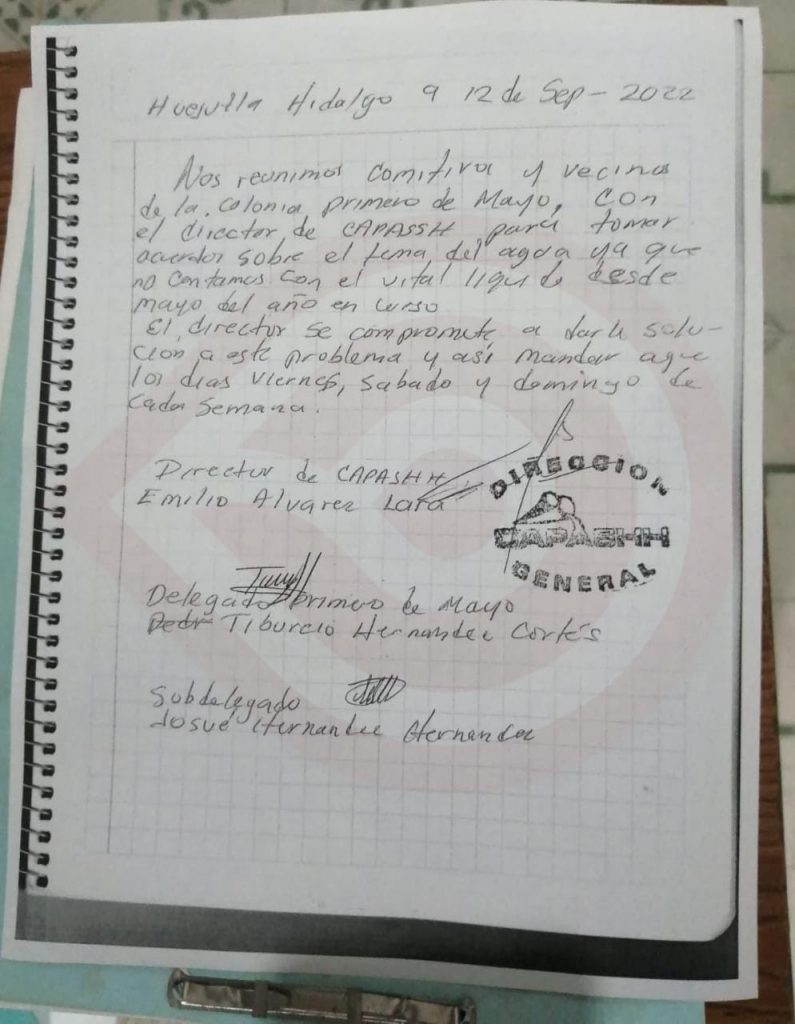 Huejutla Hidalgo a 12 de Sep - 2022
Nos reunimos comitiva y vecinos
de la colonia primero de Mayo, con
el director de CAPASSH para tomar
acuerdos sobre el tema del agua ya que
no contamos con el vital liquido desde
mayo del año en curso
El director se compromete a darle solu-
ción a este problema y así mandar agua
los días viernes, sabado y domingo de
cada semana.
Director de CAPASHH
Emilio Alvarez Lara
DIRECCION
CAPASHH
GENERAL
Delegado primero de Mayo
Pedr Tiburcio Hernandez Cortés
Subdelegado
Josué Hernandez Hernandez